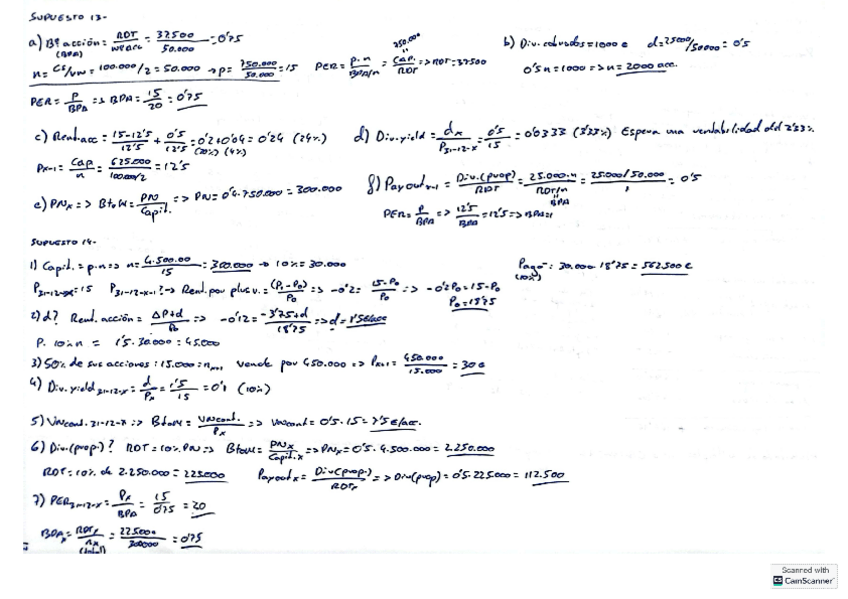 SUPUESTO 13-
a) Bº acción = RDT/nº acc = 37500/50.000 = 0'75
(BPA)
n = CS/VN = 100.000/2 = 50.000 → p = 750.000/50.000 = 15 PER = p.n/BPA/n = Cap./RDT => RDT = 37500
750.000
PER = P/BPA => BPA = 15/20 = 0'75
b) Div. cobrados = 1000 € d = 25000/50000 = 0'5
0'5n = 1000 => n = 2000 acc.
c) Rent. acc = 15-12'5/12'5 + 0'5/12'5 = 0'2 + 0'04 = 0'24 (24%)
(20%) (4%)
Px-1 = Cap/n = 625.000/100.000/2 = 12'5
d) Div. yield = dx/P31-12-x = 0'5/15 = 0'0333 (3'33%) Espera una rentabilidad del 3'33%
e) PNx => BtoM = PN/Capit. => PN = 0'4.750.000 = 300.000
f) Payout x-1 = Div.(prop)/RDT = 25.000.n/RDT/n = 25.000/50.000/1 = 0'5
BPA
PER = P/BPA => 12'5/BPA = 12'5 => BPA = 1
SUPUESTO 14-
1) Capit. = p.n => n = 4.500.00/15 = 300.000 → 10% = 30.000
Pagó = 30.000.18'75 = 562.500 €
(10%)
P31-12-x = 15 P31-12-x-1? → Rent. por plusv. = (P1-P0)/P0 => -0'2 = 15-P0/P0 => -0'2P0 = 15-P0
P0 = 18'75
2) d? Rent. acción = ΔP+d/P0 => -0'12 = -3'75+d/18'75 => d = 1'5€/acc
P. 10% n = 1'5.30.000 = 45.000
3) 50% de sus acciones: 15.000 = nx+1 Vende por 450.000 => Px+1 = 450.000/15.000 = 30 €
4) Div. yield 31-12-x = d/Px = 1'5/15 = 0'1 (10%)
5) VNcont. 31-12-x => BtoM = VNcont./Px => VNcont = 0'5.15 = 7'5 €/acc.
6) Div.(prop.)? RDT = 10% PN => BtoM = PNx/Capit.x => PNx = 0'5.4.500.000 = 2.250.000
RDT = 10% de 2.250.000 = 225.000 Payout x = Div(prop.)/RDTx => Div(prop) = 0'5.225.000 = 112.500
7) PER31-12-x = Px/BPA = 15/0'75 = 20
BPAx = RDTx/nx = 225000/300000 = 0'75
(total)
Scanned with
CS CamScanner